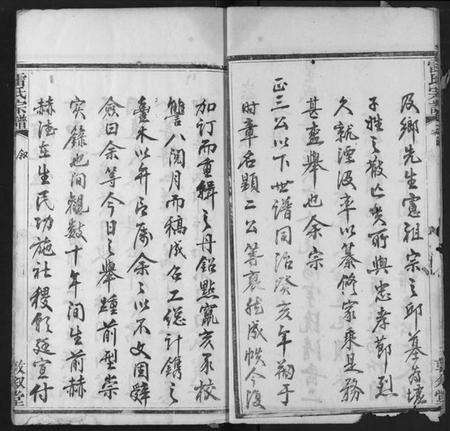 及鄉先生憲祖宗之邱墓為墟
子姓之散亡眾所與忠孝節烈
久就湮沒率以纂修家乘是務
甚盛舉也余宗
正三公以下世譜同治癸亥年
時章名顯二公等裒然成帙今復
加訂而重輯之丹鉛點竄亥豕校
讐八閱月而稿成召工總計鐫之
棗木以弁言屬余余以不文固辭
僉曰余等今日之舉踵前型崇
實錄也間觀數十年間生前赫
赫澤在生民功施社稷乃延宣付
雷氏宗譜
叙
敦叙堂